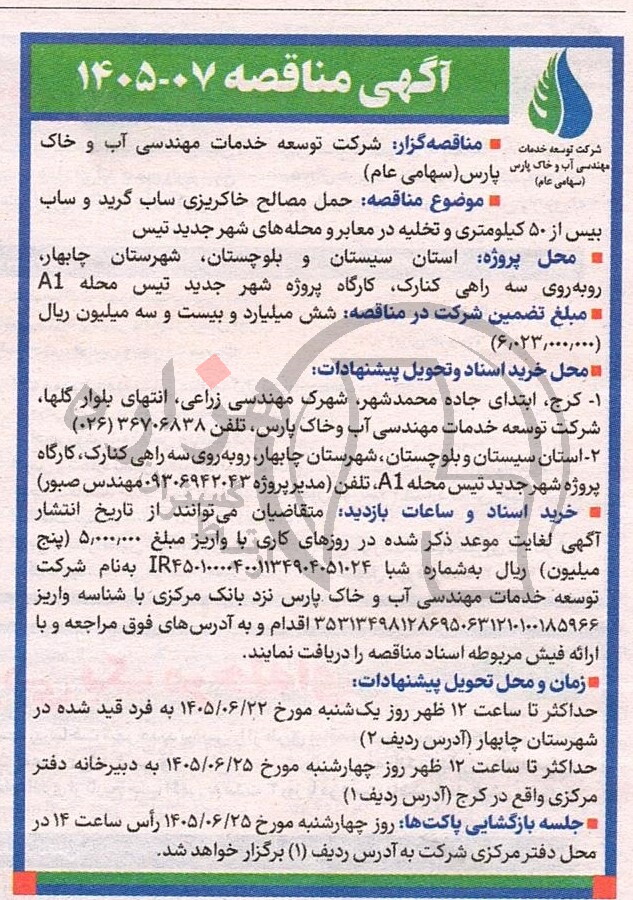 آگهی مناقصه ۰۷-۱۴۰۵
شرکت توسعه خدمات
مهندسی آب و خاک پارس
(سهامی عام)
مناقصه‌گزار: شرکت توسعه خدمات مهندسی آب و خاک
پارس(سهامی عام)
موضوع مناقصه: حمل مصالح خاکریزی ساب گرید و ساب
بیس از ۵۰ کیلومتری و تخلیه در معابر و محله‌های شهر جدید تیس
محل پروژه: استان سیستان و بلوچستان، شهرستان چابهار،
روبه‌روی سه راهی کنارک، کارگاه پروژه شهر جدید تیس محله A1
مبلغ تضمین شرکت در مناقصه: شش میلیارد و بیست و سه میلیون ریال
(۶٫۰۲۳٫۰۰۰٫۰۰۰)
محل خرید اسناد و تحویل پیشنهادات:
۱- کرج، ابتدای جاده محمدشهر، شهرک مهندسی زراعی، انتهای بلوار گلها،
شرکت توسعه خدمات مهندسی آب وخاک پارس، تلفن ۳۶۷۰۶۸۳۸ (۰۲۶)
۲- استان سیستان و بلوچستان، شهرستان چابهار، روبه‌روی سه راهی کنارک، کارگاه
پروژه شهر جدید تیس محله A1، تلفن (مدیر پروژه ۰۹۳۰۶۹۴۲۰۴۳ مهندس صبور)
خرید اسناد و ساعات بازدید: متقاضیان می‌توانند از تاریخ انتشار
آگهی لغایت موعد ذکر شده در روزهای کاری با واریز مبلغ ۵٫۰۰۰٫۰۰۰ (پنج
میلیون) ریال به‌شماره شبا IR۴۵۰۱۰۰۰۰۴۰۰۱۱۳۴۹۰۴۰۵۱۰۲۴ به‌نام شرکت
توسعه خدمات مهندسی آب و خاک پارس نزد بانک مرکزی با شناسه واریز
۳۵۳۱۳۴۹۸۱۲۸۶۹۵۰۶۳۱۲۱۰۱۰۰۱۸۵۹۶۶ اقدام و به آدرس‌های فوق مراجعه و با
ارائه فیش مربوطه اسناد مناقصه را دریافت نمایند.
زمان و محل تحویل پیشنهادات:
حداکثر تا ساعت ۱۲ ظهر روز یک‌شنبه مورخ ۱۴۰۵/۰۶/۲۲ به فرد قید شده در
شهرستان چابهار (آدرس ردیف ۲)
حداکثر تا ساعت ۱۲ ظهر روز چهارشنبه مورخ ۱۴۰۵/۰۶/۲۵ به دبیرخانه دفتر
مرکزی واقع در کرج (آدرس ردیف ۱)
جلسه بازگشایی پاکت‌ها: روز چهارشنبه مورخ ۱۴۰۵/۰۶/۲۵ رأس ساعت ۱۴ در
محل دفتر مرکزی شرکت به آدرس ردیف (۱) برگزار خواهد شد.
هزاره